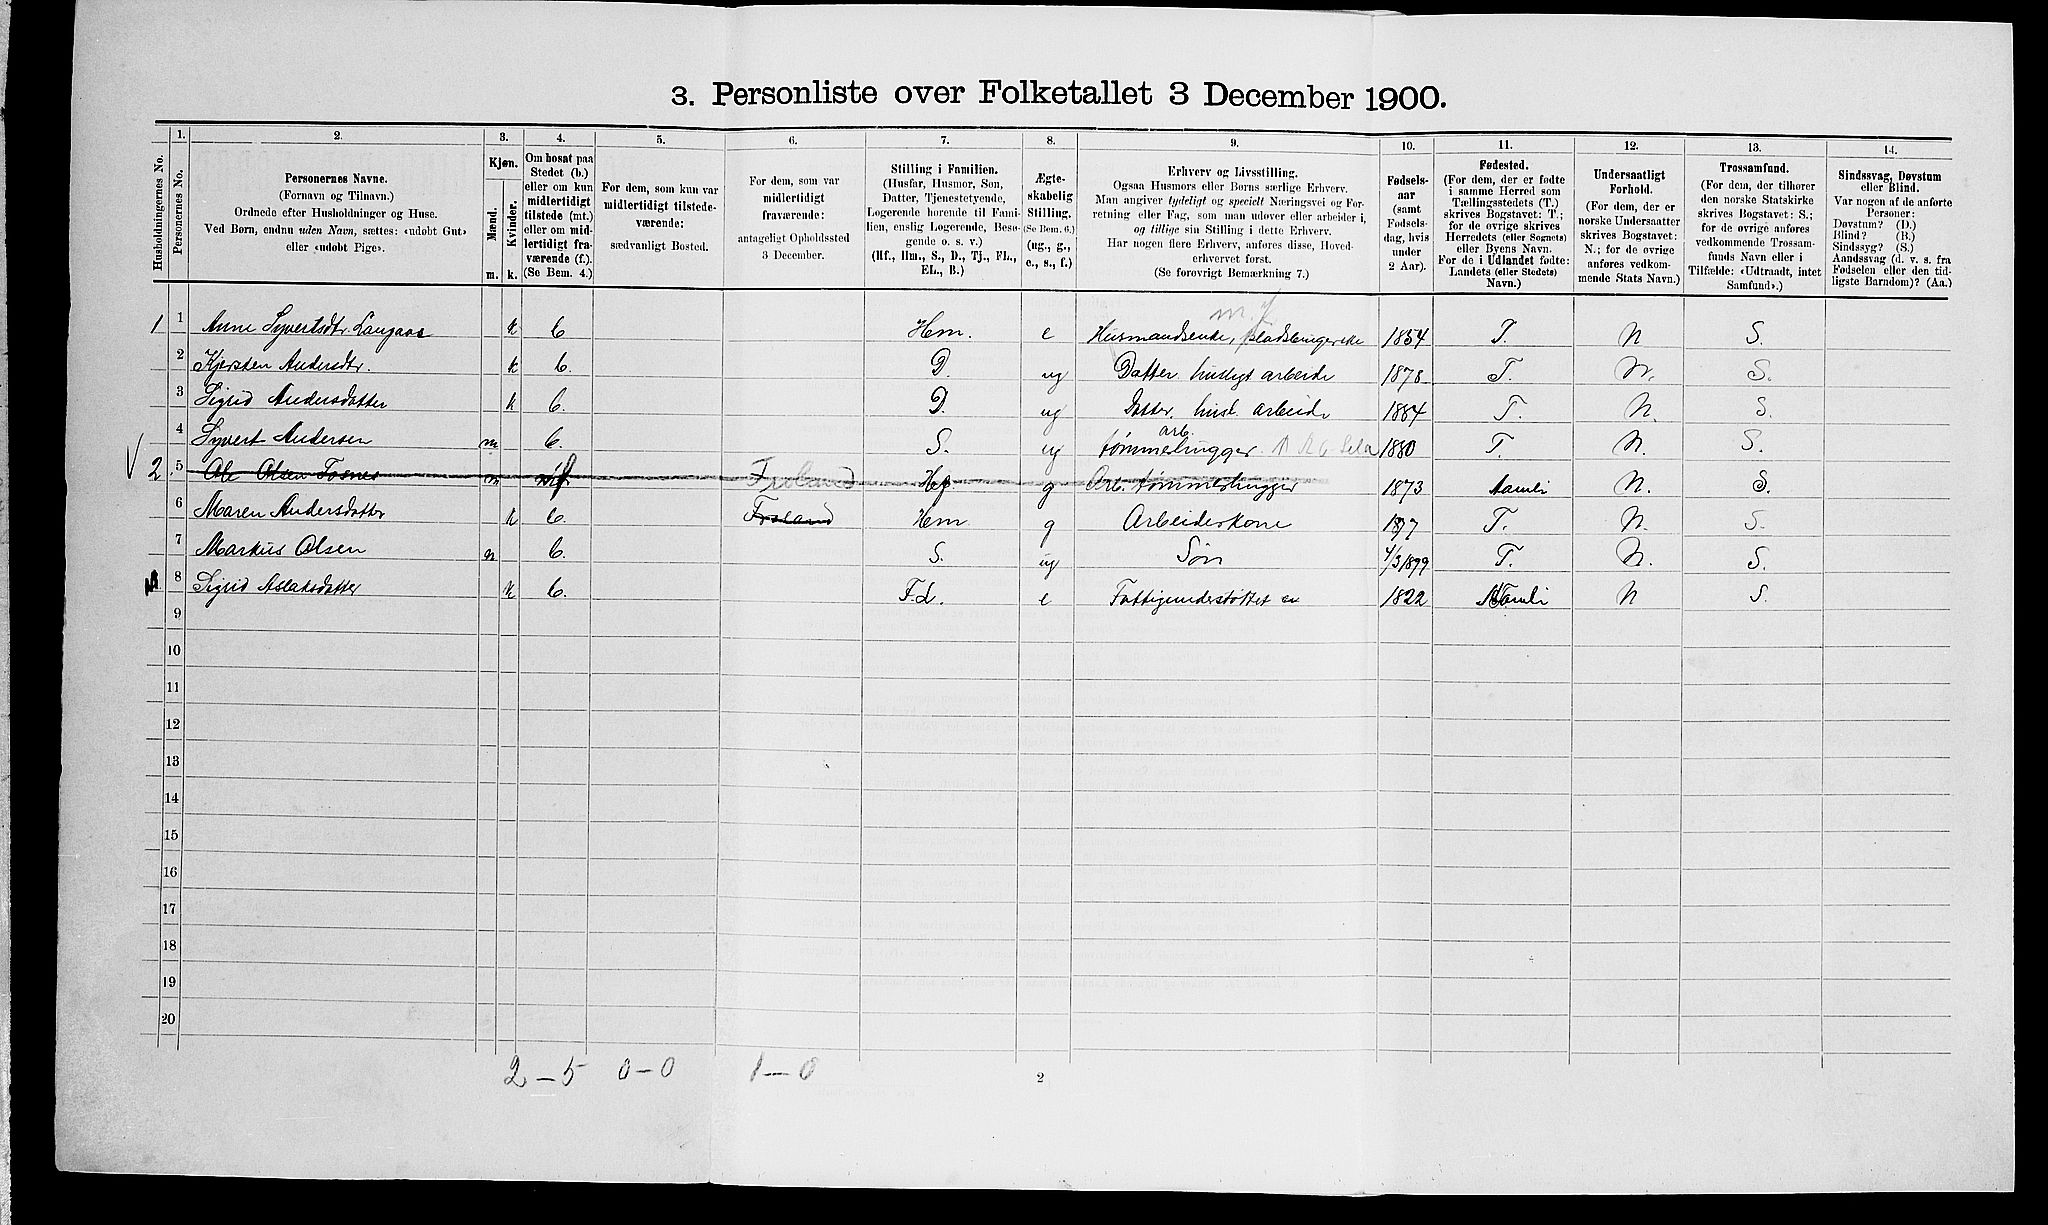 3. Personliste over Folketallet 3 December 1900.
Husholdningernes No.
1.
Personernes No.
2.
Personernes Navne.
(Fornavn og Tilnavn.)
Ordnede efter Husholdninger og Huse.
Ved Børn, endnu uden Navn, sættes: «udøbt Gut»
eller «udøbt Pige».
3.
Kjøn.
Mænd.
Kvinder.
m.
k.
4.
Om bosat paa
Stedet (b.)
eller om kun
midlertidigt
tilstede (mt.)
eller om mid-
lertidigt fra-
værende (f.).
(Se Bem. 4.)
5.
For dem, som kun var
midlertidigt tilstede-
værende:
sædvanligt Bosted.
6.
For dem, som var
midlertidigt
fraværende:
antageligt Opholdssted
3 December.
7.
Stilling i Familien.
(Husfar, Husmor, Søn,
Datter, Tjenestetyende,
Logerende hørende til Fami-
lien, enslig Logerende, Besø-
gende o. s. v.)
(Hf., Hm., S., D., Tj., FL.,
EL., B.)
8.
Ægte-
skabelig
Stilling.
(Se Bem. 6.)
(ug., g.,
e., s., f.)
9.
Erhverv og Livsstilling.
Ogsaa Husmors eller Børns særlige Erhverv.
Man angiver tydeligt og specielt Næringsvei og For-
retning eller Fag, som man udøver eller arbeider i,
og tillige sin Stilling i dette Erhverv.
Har nogen flere Erhverv, anføres disse, Hoved-
erhvervet først.
(Se forøvrigt Bemærkning 7.)
10.
Fødsels-
aar
(samt
Fødsels-
dag, hvis
under
2 Aar).
11.
Fødested.
(For dem, der er fødte
i samme Herred som
Tællingsstedets (T.)
skrives Bogstavet: T.;
for de øvrige skrives
Herredets (eller Sognets)
eller Byens Navn.
For de i Udlandet fødte:
Landets (eller Stedets)
Navn.)
12.
Undersaatligt
Forhold.
(For dem, der er
norske Undersaatter
skrives Bogstavet:
N.; for de øvrige
anføres vedkom-
mende Stats Navn.)
13.
Trossamfund.
(For dem, der tilhører
den norske Statskirke
skrives Bogstavet: S.;
for de øvrige anføres
vedkommende Trossam-
funds Navn eller i
Tilfælde: «Udtraadt, intet
Samfund».)
14.
Sindssvag, Døvstum
eller Blind.
Var nogen af de anførte
Personer:
Døvstum? (D.)
Blind? (B.)
Sindssyg? (S.)
Aandssvag (d. v. s. fra
Fødselen eller den tid-
ligste Barndom)? (Aa.)
1 1 Anne Syvertsdtr Langaas k b Hm. e Husmandsenke, pladsbrugerske 1854 T. N S.
2 Kjersten Andersdtr. k b. D. ug Datter husligt arbeide 1878 T. N. S.
3 Sigrid Andersdatter k b. D. ug Datter. husl. arbeide 1884 T. N. S.
arb.
4 Syvert Andersen m b. S. ug tømmerhugger 1880 T. N. S.
2 5 Ole Olsen Fosnes m f Froland Hf. g Arb. tømmerhugger 1873 Aamli N. S.
6 Maren Andersdatter k b. Froland Hm g Arbeiderkone T. N. S.
7 Markus Olsen m b. S. ug Søn 4/3 1899 T. N. S.
8 Sigrid Aslaksdatter k b. F.d. e Fattigunderstøttet 1822 Aamli N S.
9
10
11
12
13
14
15
16
17
18
19
20
2 – 5 0 – 0 1 – 0
2